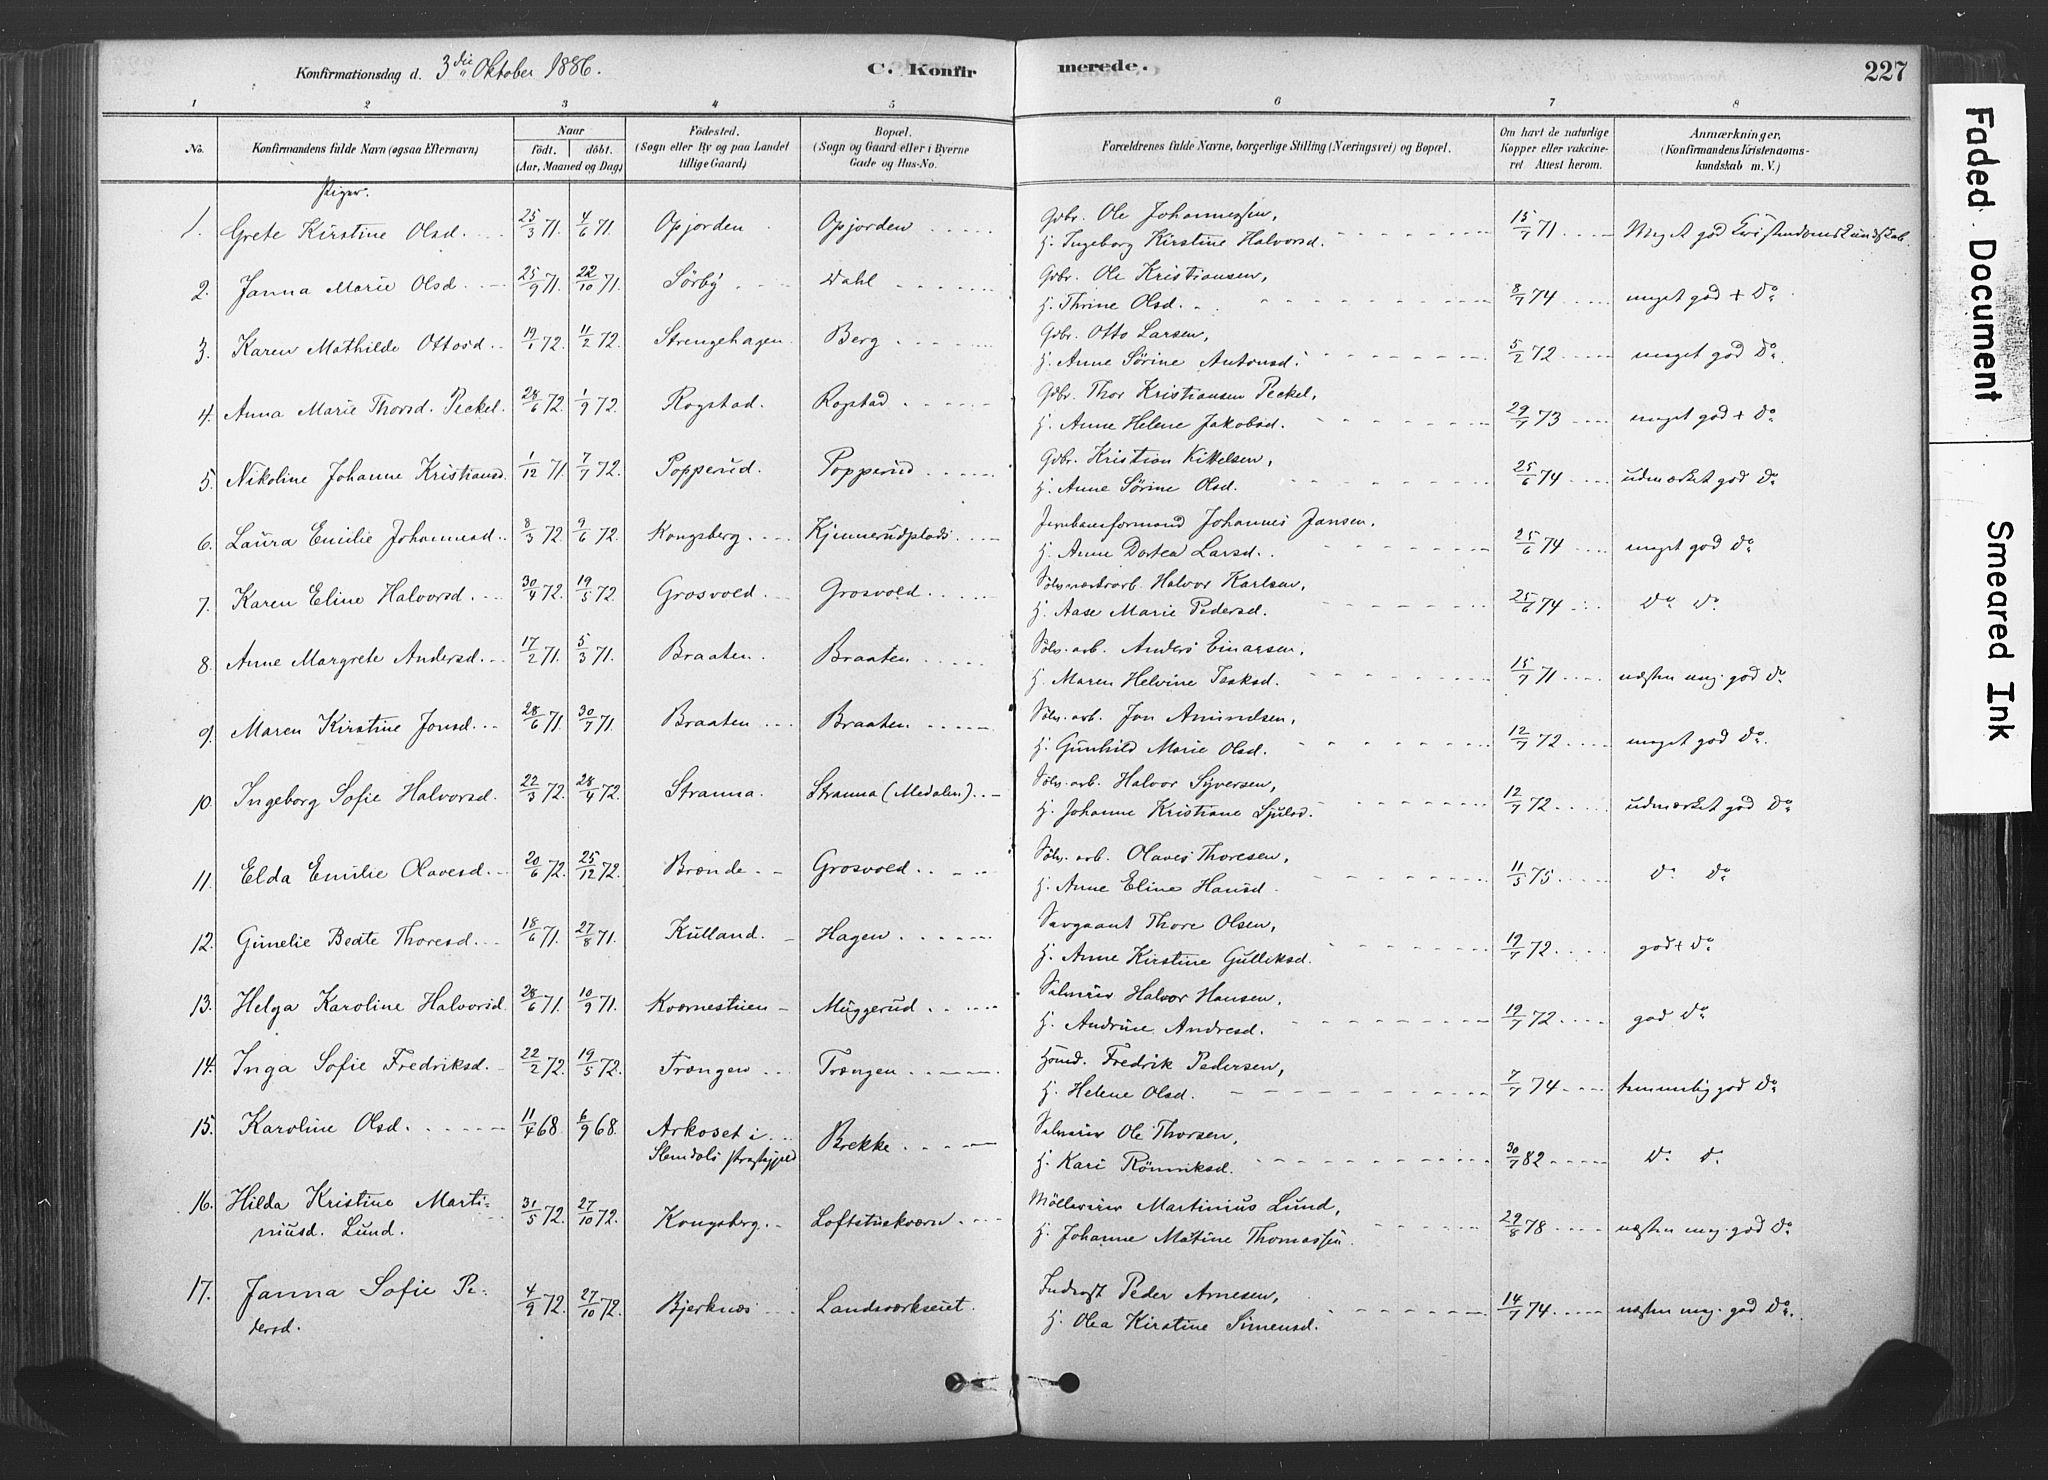 Konfirmationsdag d. 3die Oktober 1886.
C. Konfirmerede.
227
1 2 3 4 5 6 7 8
No.
Konfirmandens fulde Navn (ogsaa Efternavn)
Naar
født. døbt.
(Aar, Maaned og Dag)
Fødested.
(Sogn eller By og paa Landet
tillige Gaard)
Bopæl.
(Sogn og Gaard eller i Byerne
Gade og Hus-No.
Forældrenes fulde Navne, borgerlige Stilling (Næringsvei) og Bopæl.
Om havt de naturlige
Kopper eller vakcine-
ret Attest herom.
Anmærkninger,
(Konfirmandens Kristendoms-
kundskab m. V.)
Piger.
1. Grete Kirstine Olsd. 25/3 71. 4/6 71. Opjorden Opjorden Gbr. Ole Johannessen, 15/7 71 Meget god Kristendomskundskab.
H. Ingeborg Kirstine Halvorsd.
2. Janna Marie Olsd. 25/9 71. 22/10 71. Sørby Dahl Gbr. Ole Kristiansen, 8/7 74 meget god + Do
H. Thrine Olsd.
3. Karen Mathilde Ottosd. 19/1 72. 11/2 72. Strengehagen Berg Gbr. Otto Larsen, 5/2 72 meget god Do
H. Anne Sørine Antonsd.
4. Anna Marie Thorsd. Peckel. 28/6 72. 1/9 72. Rogstad. Rogstad Gbr. Thor Kristiansen Peckel, 29/7 73 meget god + Do
H. Anne Helene Jakobsd.
5. Nikoline Johanne Kristiansd. 1/12 71. 7/7 72. Popperud. Popperud Gbr. Kristian Kittelsen, 25/6 74 udmærket god Do
H. Anne Sørine Olsd.
6. Laura Emilie Johannesd. 8/3 72. 9/6 72. Kongsberg. Kjennerudplads. Jernbaneformand Johannes Jansen, 25/6 74 meget god Do
H. Anne Dortea Larsd.
7. Karen Eline Halvorsd. 30/4 72. 19/5 72. Grosvold Grosvold Sølvværksarb. Halvor Karlsen, 25/6 74 Do Do
H. Aase Marie Pedersd.
8. Anne Margrete Andersd. 17/2 71. 5/3 71. Braaten. Braaten Sølv. arb. Anders Einarsen, 15/7 71 næsten meg. god Do
H. Maren Helvine Isaksd.
9. Maren Kirstine Jonsd. 28/6 71. 30/7 71. Braaten Braaten Sølv. arb. Jon Amundsen, 12/7 72 meget god Do
H. Gunhild Marie Olsd.
10. Ingeborg Sofie Halvorsd. 22/3 72. 28/4 72. Stranna. Stranna (Medalen) Sølv. arb. Halvor Syversen, 12/7 72 udmærket god Do
H. Johanne Kristiane Sjulsd.
11. Elda Emilie Olavesd. 20/6 72. 25/12 72. Brænde Grosvold Sølv. arb. Olaves Thoresen, 11/5 75 Do Do
H. Anne Eline Hansd.
12. Gunelie Beate Thoresd. 18/6 71. 27/8 71. Kulland. Hagen Sergeant Thore Olsen, 19/7 72 god + Do
H. Anne Kirstine Gulliksd.
13. Helga Karoline Halvorsd. 28/6 71. 10/9 71. Kværnestuen Muggerud Halvor Hansen, 19/7 72 god Do
H. Andrine Andresd.
14. Inga Sofie Fredriksd. 22/2 72. 19/5 72. Trængen Trængen Husmd. Fredrik Pedersen, 7/7 74 temmelig god Do
H. Helene Olsd.
15. Karoline Olsd. 11/4 68. 6/9 68. Arkoset i Brekke Ole Thorsen, 30/7 82 Do Do
Slemdals Præstegjæld H. Kari Rønniksd.
16. Hilda Kristine Marti- 31/5 72. 27/10 72. Kongsberg. Loftstuskværn Möllesvier Martinius Lund, 29/8 78 næsten meg. god Do
niusd. Lund. H. Johanne Matine Thomassen.
17. Janna Sofie Pe- 4/9 72. 27/10 72. Bjerknæs Landsværkseiet. Inderst Peder Arnesen, 14/7 74 næsten meg. god Do
dersd. H. Olea Kirstine Simensd.
Faded Document
Smeared Ink